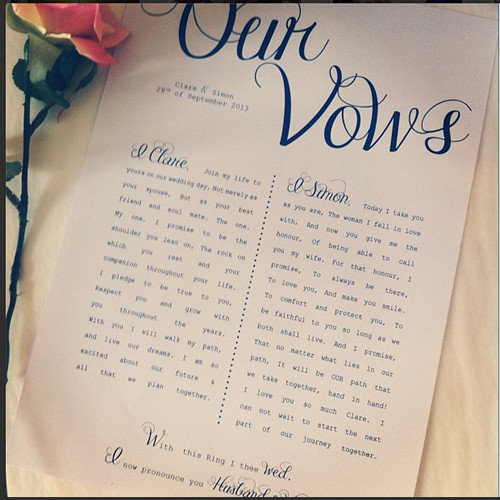 Our
Vows
Clare & Simon
28th of September 2013
I Clare, Join my life to
yours on our wedding day, Not merely as
your spouse, But as your best
friend and soul mate. The one.
My one. I promise to be the
shoulder you lean on, The rock on
which you rest and your
companion throughout your life.
I pledge to be true to you,
Respect you and grow with
you throughout the years.
With you I will walk my path,
and live our dreams. I am so
excited about our future &
all that we plan together.
I Simon, Today I take you
as you are, The woman I fell in love
with, And now you give me the
honour, Of being able to call
you my wife. For that honour, I
promise, To always be there,
To love you, And make you smile.
To comfort and protect you, To
be faithful to you so long as we
both shall live. And I promise,
That no matter what lies in our
path, It will be OUR path that
we take together, hand in hand!
I love you so much Clare. I
can not wait to start the next
part of our journey together.
With this Ring I thee Wed.
I now pronounce you Husband